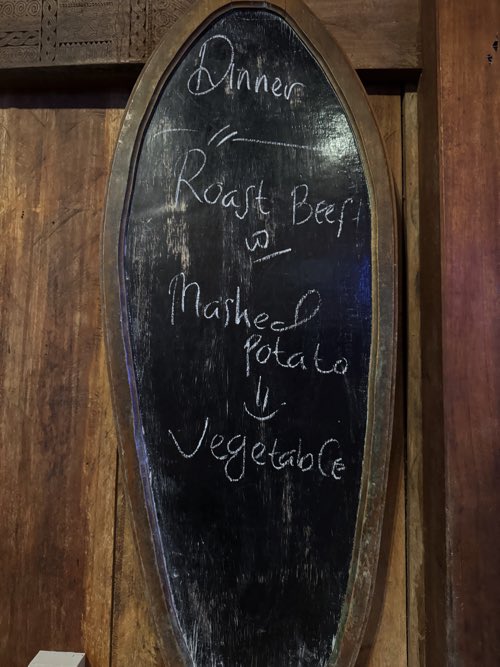 Dinner
Roast Beef
w
Mashed
Potato
Vegetable